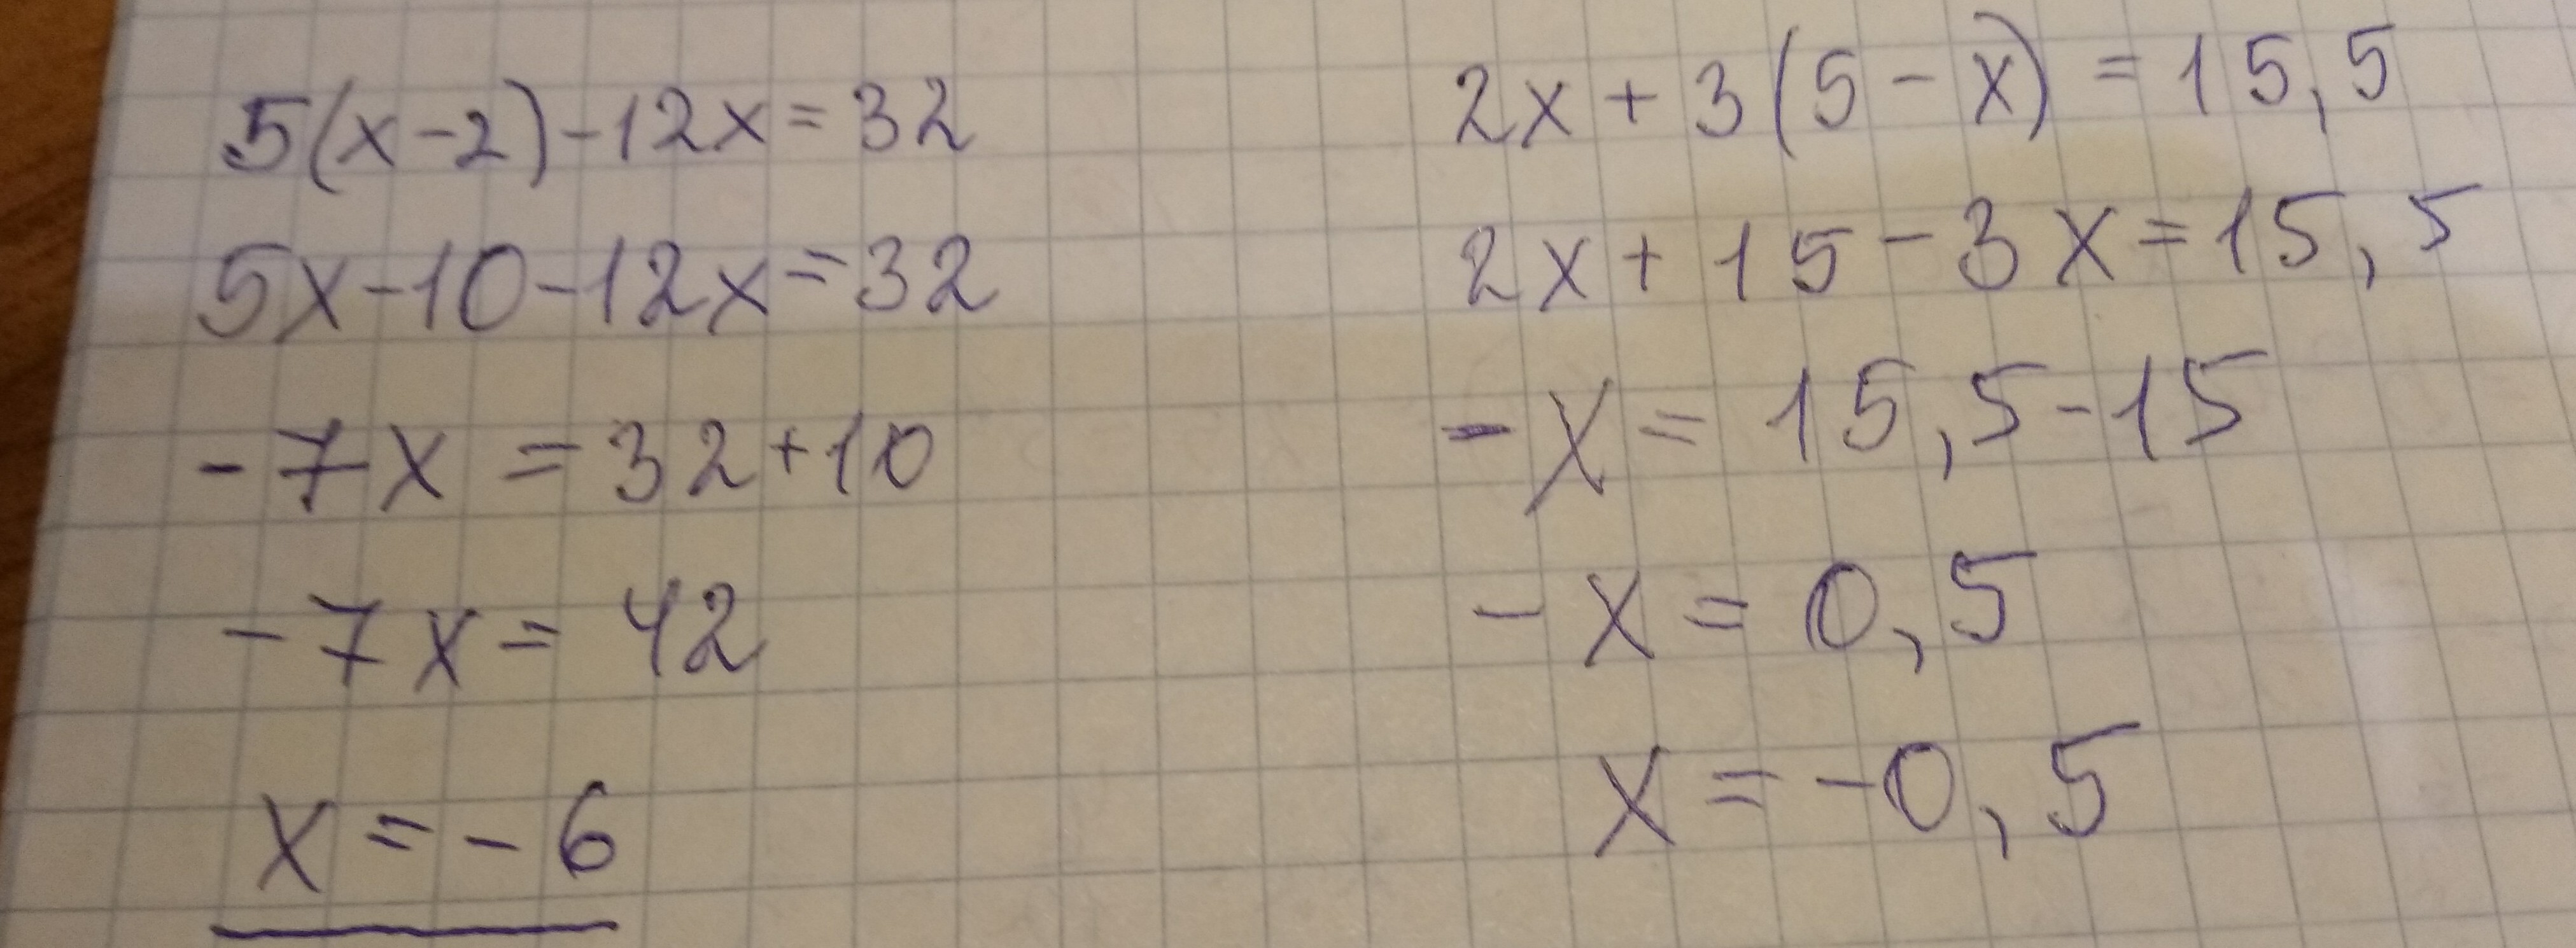 5(x-2)-12x=32
5x-10-12x=32
-7x=32+10
-7x=42
x=-6
2x+3(5-x)=15,5
2x+15-3x=15,5
-x=15,5-15
-x=0,5
x=-0,5